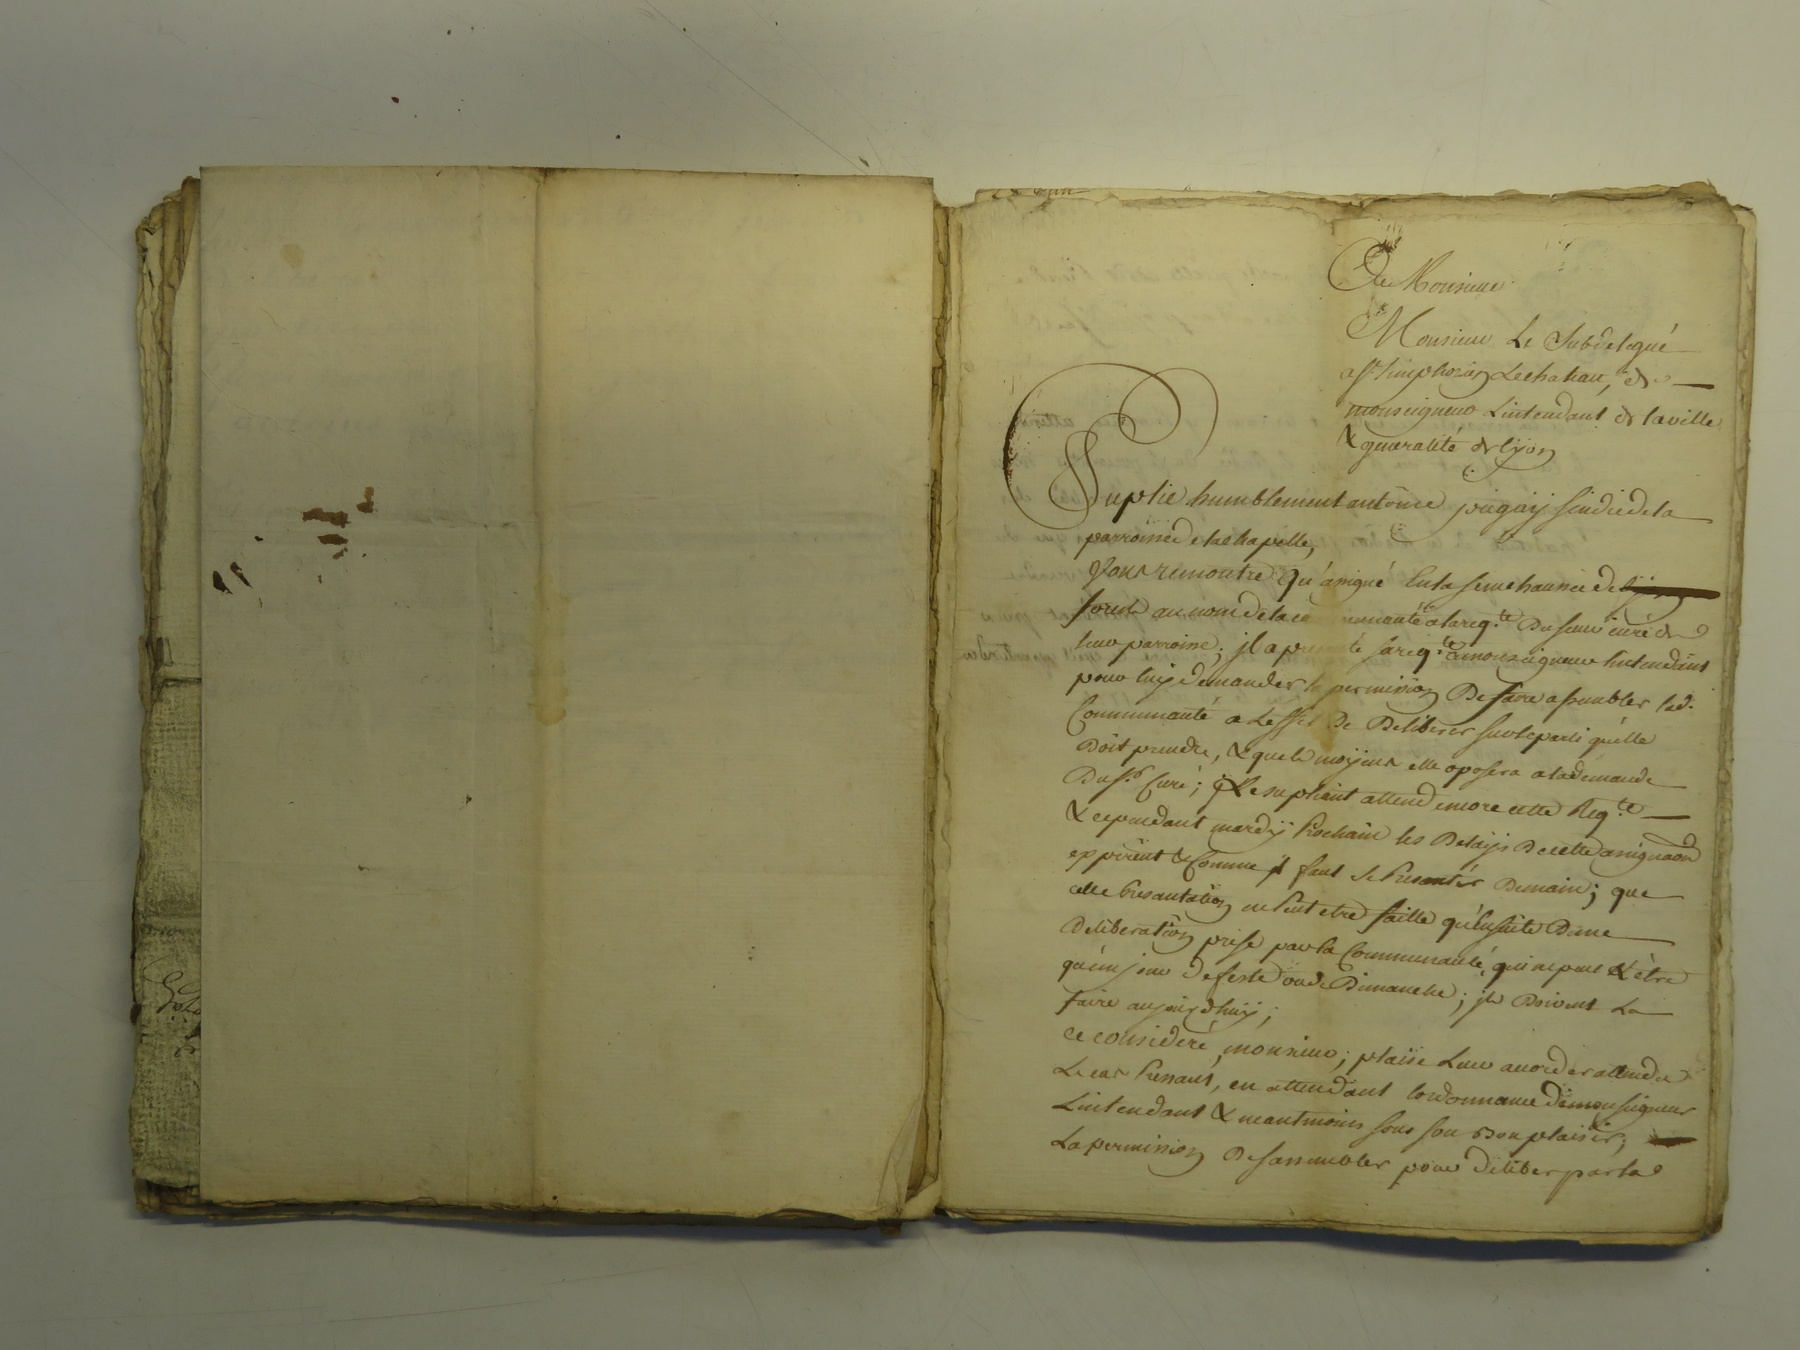 De Monsieur
Monsieur Le Subdelegué
a st Simphorien Lechateau, de
monseigneur Lintendant de la ville
& gneralité de lÿon
Suplie humblement antoine sindic de la
parroisse de la chapelle,
Vous remontre Qu'assigné En la senechaussée de
au nom de la communauté a la req.te Du sieur curé de
leur parroisse; jl a presenté sa req.te a monseigneur Lintendant
pour luy demander la permission De faire assembler lad.
Communauté a Leffet De Deliberer sur le parti qu'elle
Doit prendre, & quels moyens elle oposera a la demande
Du sr Curé; Le supliant attend encore cette Req.te
& cependant mardÿ Prochain les Delays De cette assignaon
expirent & Comme jl faut se Presanter Demain; que
cette Presantation ne Peut etre faitte qu'Ensuite Dune
Deliberation prise par la Communauté, qui ne peut L'être
qu'un jour de feste ou de Dimanche; jls Doivent La
faire aujourdhuy;
ce consideré, monsieur; plaise Leur accorder attendu
Le cas Pressant, en attendant lordonnance de monseigneur
Lintendant & neantmoins sous son Bon plaisir;
La permission De sassembler pour deliber par la